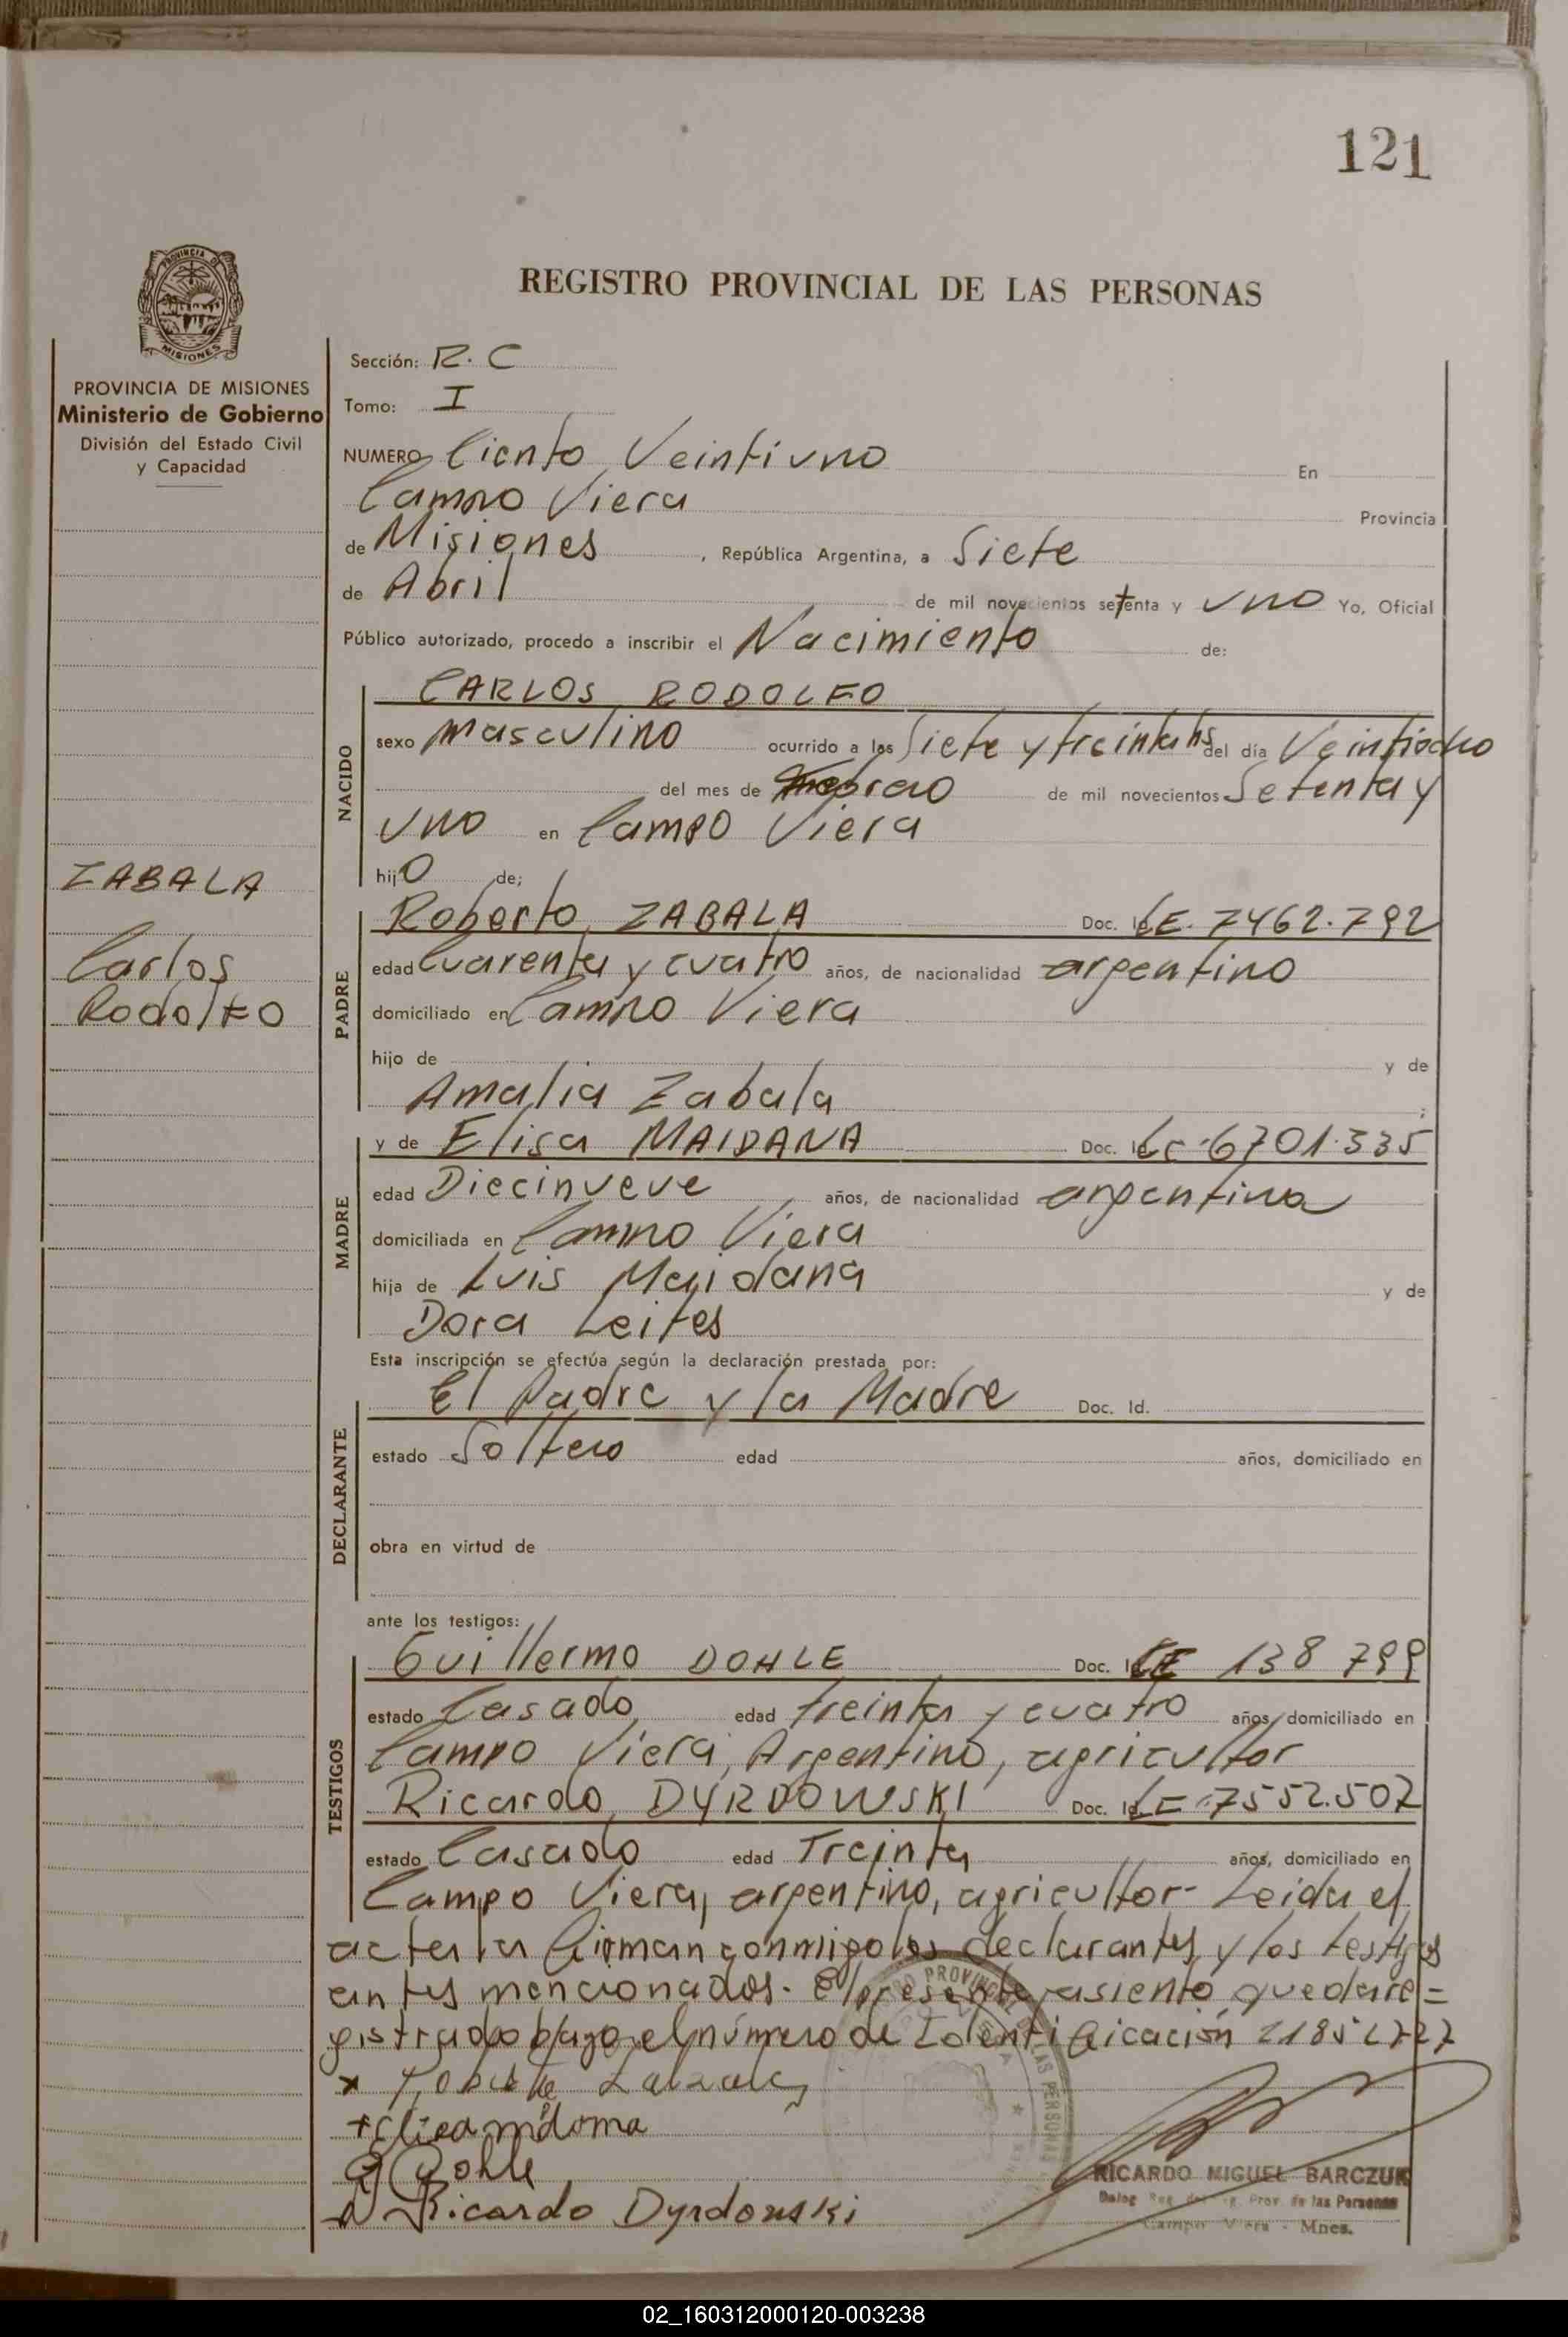 121
PROVINCIA DE
MISIONES
PROVINCIA DE MISIONES
Ministerio de Gobierno
División del Estado Civil
y Capacidad
ZABALA
Carlos
Rodolfo
REGISTRO PROVINCIAL DE LAS PERSONAS
Sección: R. C
Tomo: I
NUMERO Ciento Veintiuno En
Campo Viera Provincia
de Misiones, República Argentina, a Siete
de Abril de mil novecientos setenta y uno Yo, Oficial
Público autorizado, procedo a inscribir el Nacimiento de:
NACIDO
CARLOS RODOLFO
sexo masculino ocurrido a las Siete y treinta hs del día Veintiocho
del mes de de mil novecientos Setenta y
uno en Campo Viera
hijo de;
PADRE
Roberto ZABALA Doc. Id LE. 7462.792
edad Cuarenta y cuatro años, de nacionalidad argentino
domiciliado en Campo Viera
hijo de y de
Amalia Zabala;
MADRE
y de Elisa MAIDANA Doc. Id LC 6701.335
edad Diecinueve años, de nacionalidad argentina
domiciliada en Campo Viera
hija de Luis Maidana y de
Dora Leites
Esta inscripción se efectúa según la declaración prestada por:
DECLARANTE
El Padre y la Madre Doc. Id.
estado Soltero edad años, domiciliado en
obra en virtud de
ante los testigos:
TESTIGOS
Guillermo DOHLE Doc. Id LE 138 799
estado Casado edad treinta y cuatro años, domiciliado en
Campo Viera, Argentino, agricultor
Ricardo DYRDOWSKI Doc. Id LE 7552.507
estado Casado edad Treinta años, domiciliado en
Campo Viera, argentino, agricultor- Leida el
acta la firman conmigo los declarantes y los testigos
antes mencionados. El presente asiento quedare=
gistrado bajo el número de Identificación
x Zabala
+ Elisa
G Dohle
Ricardo Dyrdowski
RICARDO MIGUEL BARCZUK
Deleg Reg. Prov. de las Personas
Campo Viera - Mnes.
02_160312000120-003238